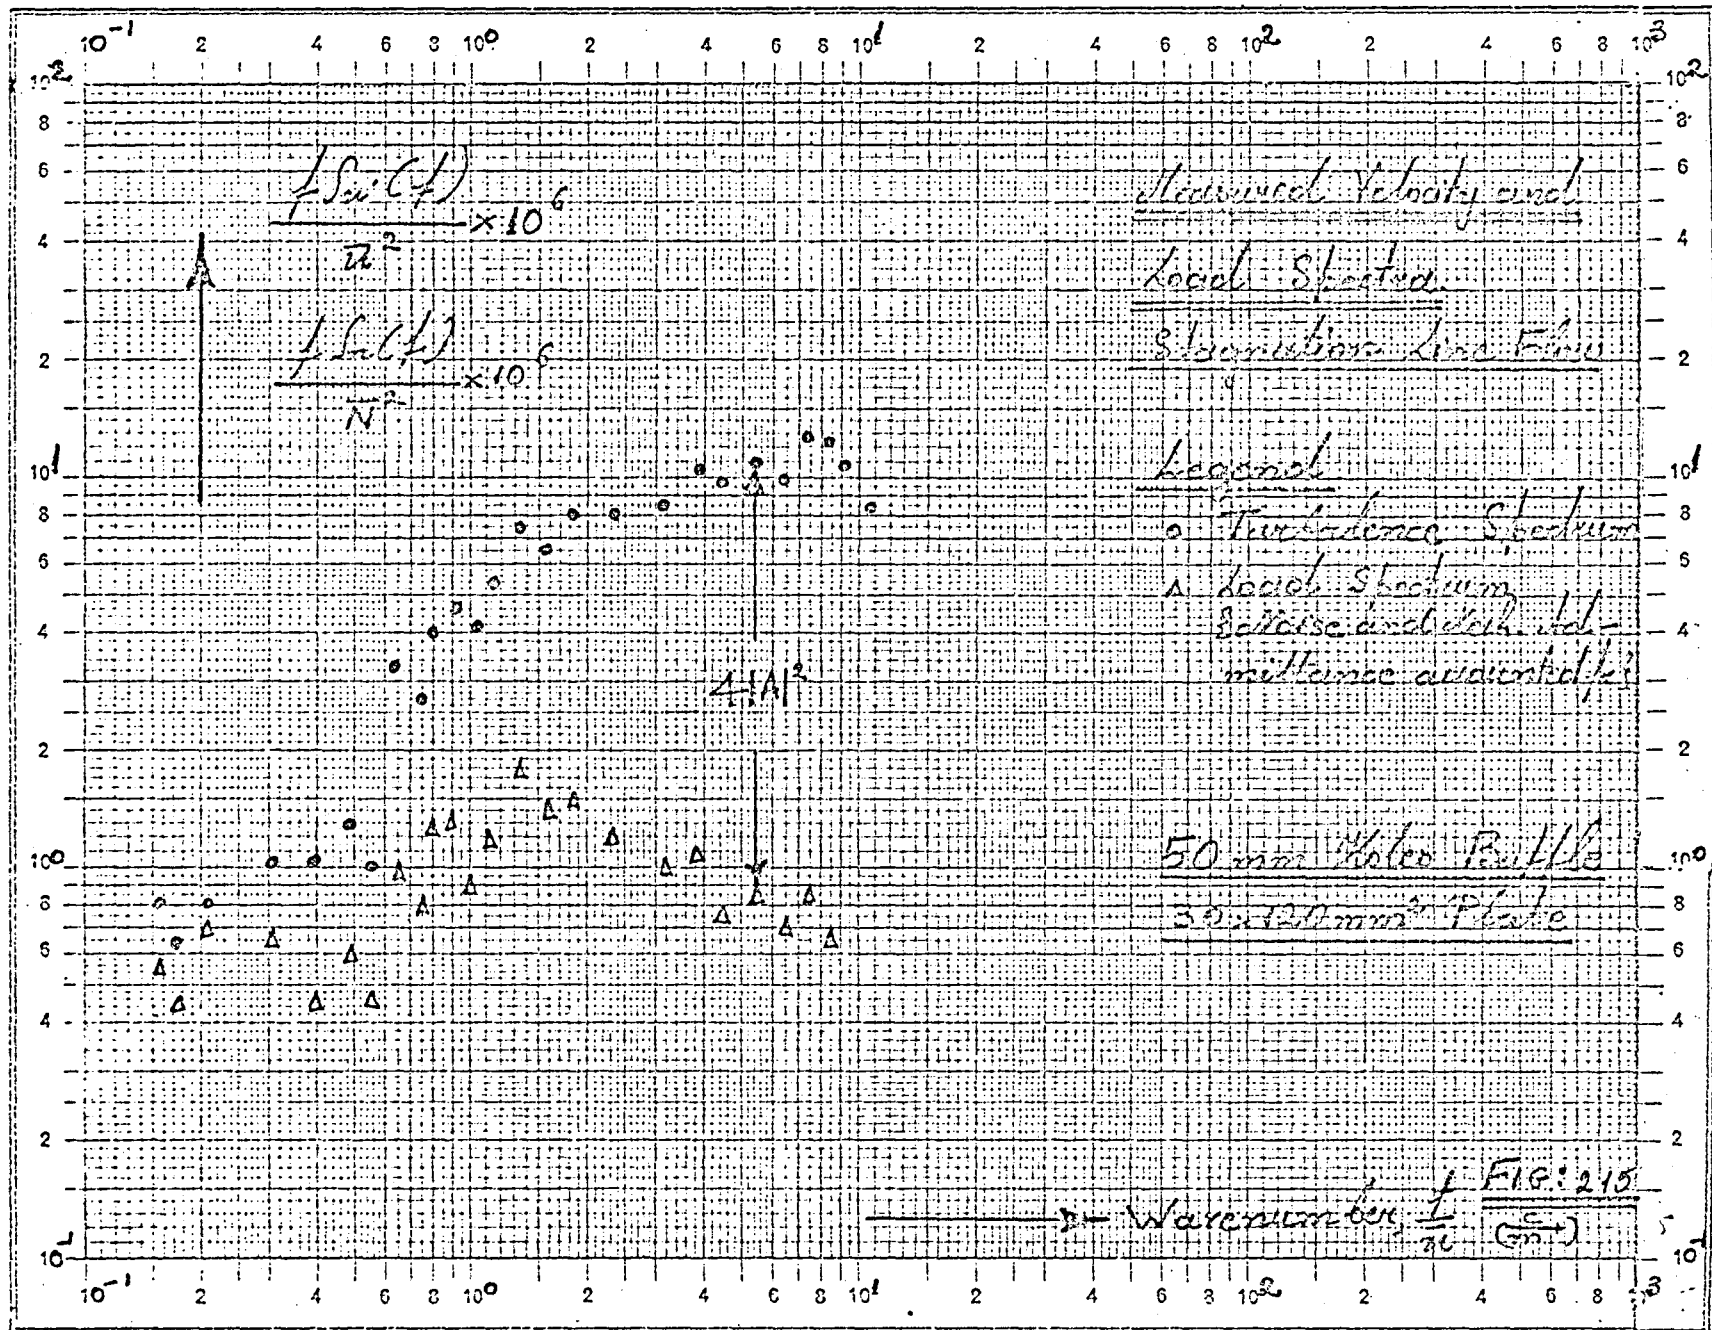 10⁻¹ 2 4 6 8 10⁰ 2 4 6 8 10¹ 6 8 10² 2 4 6 8 10³
10² 10²
8 8
6 6
4 4
2 2
10¹ 10¹
8 8
6 6
4 4
2 2
10⁰ 10⁰
8 8
6 6
4 4
2 2
10⁻¹
× 10⁶
ū²
× 10⁶
N̄²
Measured Velocity and
Load Spectra
Stagnation Line Flow
Legend
o Turbulence Spectrum
Δ Load Spectrum
and
mittance
4|A|²
50 mm Holes Baffle
30 x 120 mm² Plate
FIG: 215
Wavenumber, f/ū (c/m)
10⁻¹ 2 4 6 8 10⁰ 2 4 6 8 10¹ 2 4 6 8 10² 2 4 6 8